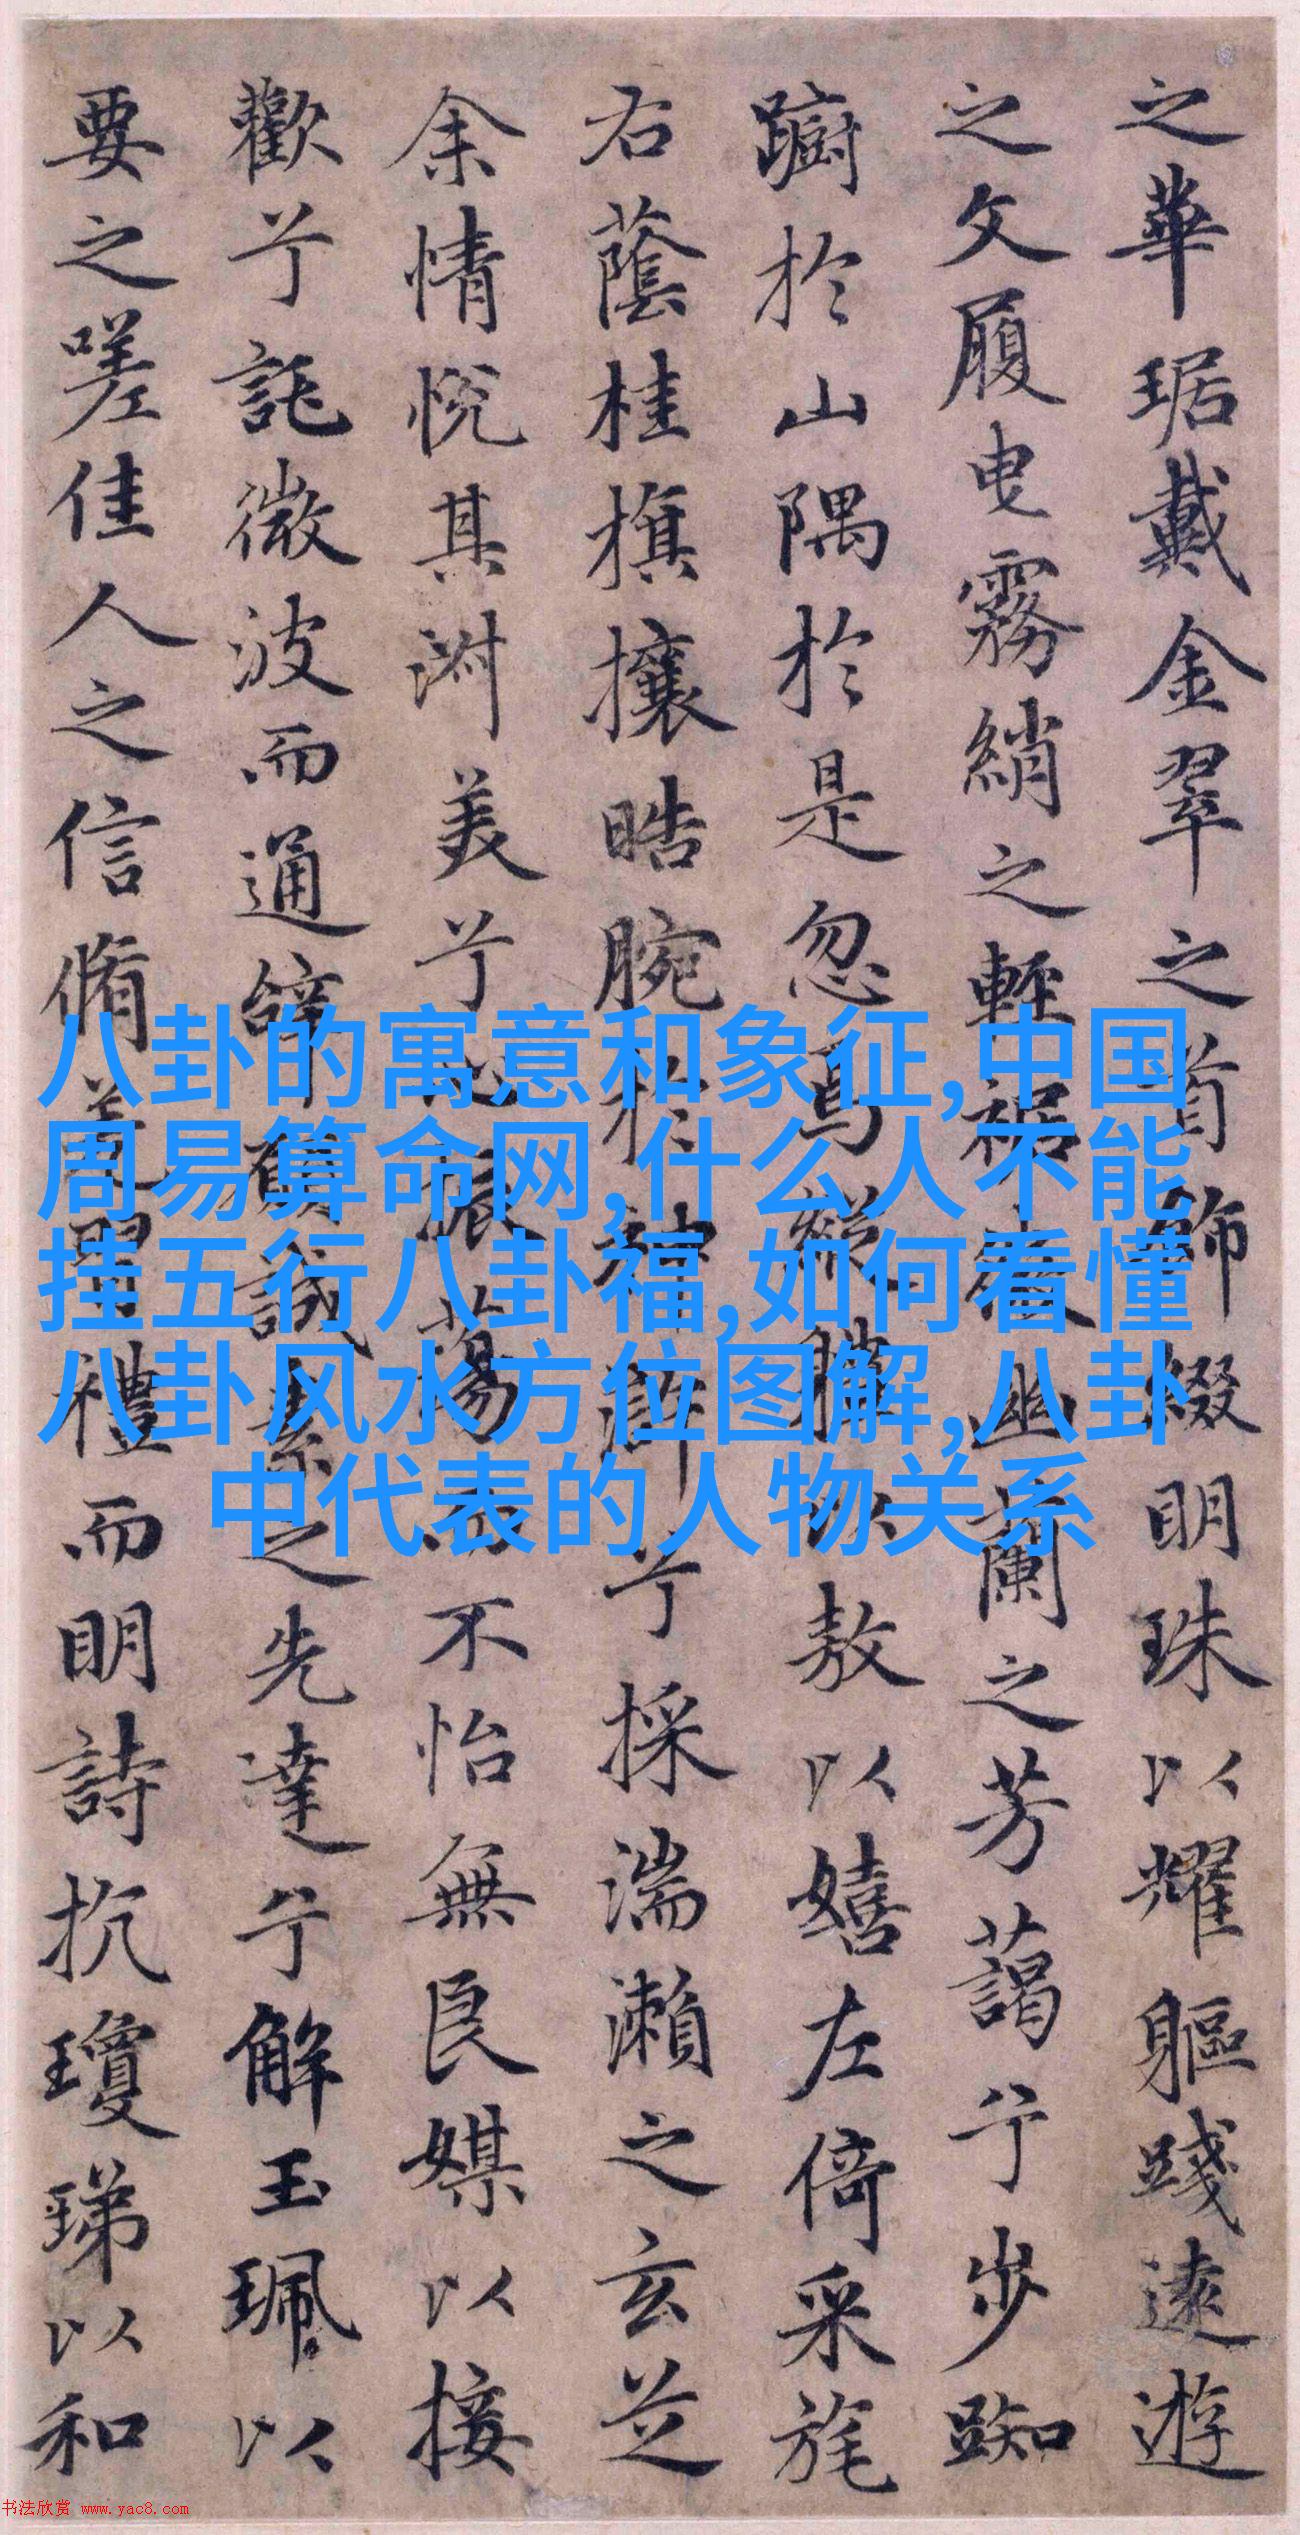 之華琚戴金翠之首飾綴明珠以耀軀踐遠遊
之文履曳霧綃之輕裾微幽蘭之芳藹兮步踟
躕於山隅於是忽焉縱體以敖以嬉左倚采旄
右蔭桂旗攘皓腕於神滸兮採湍瀨之玄芝
余情悅其淑美兮心振蕩而不怡無良媒以接
歡兮託微波而通辭願誠素之先達兮解玉珮以
要之嗟佳人之信脩羌習禮而明詩抗瓊珶以和
八卦的寓意和象征,中国
周易算命网,什么人不能
挂五行八卦福,如何看懂
八卦风水方位图解,八卦
中代表的人物关系
书法欣赏 www.yac8.com